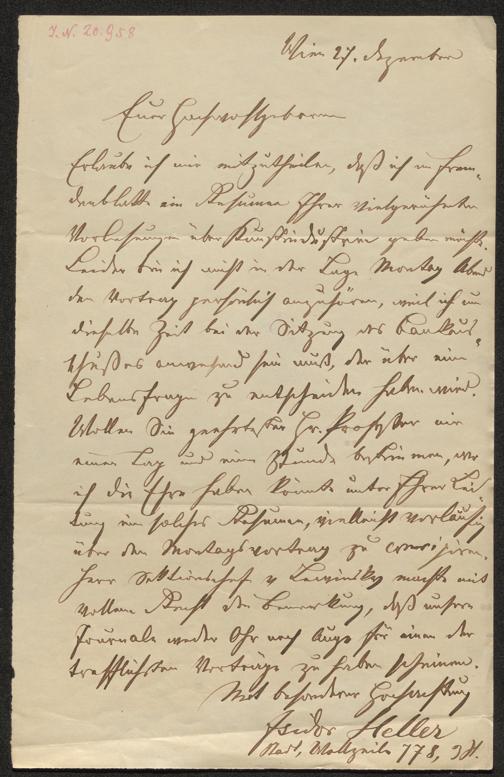 I. N. 20.958
Wien 27. Dezember
Euer Hochwohlgeboren
Erlaube ich mir mitzutheilen, daß ich im Frem-
denblatte ein Resumee Ihrer vielgerühmten
Vorlesungen über Kunstindustrie geben möchte.
Leider bin ich nicht in der Lage Montag Abend
den Vortrag persönlich anzuhören, weil ich um
dieselbe Zeit bei der Sitzung des Bankaus-
schußes anwesend sein muß, der über eine
Lebensfrage zu entscheiden haben wird.
Wollen Sie geehrtester Hr. Professor mir
einen Tag und eine Stunde bestimmen, wo
ich die Ehre haben könnte unter Ihrer Lei-
tung ein solches Resumee, vielleicht vorläufig
über den Montagsvortrag zu concipiren.
Herr Sektionschef v Lewinsky machte mit
vollem Recht die Bemerkung, daß unsere
Journale weder Ohr noch Auge für einen der
trefflichsten Vorträge zu haben scheinen.
Mit besonderer Hochachtung
Isidor Heller
Stadt, Wollzeile 778, 3 St.